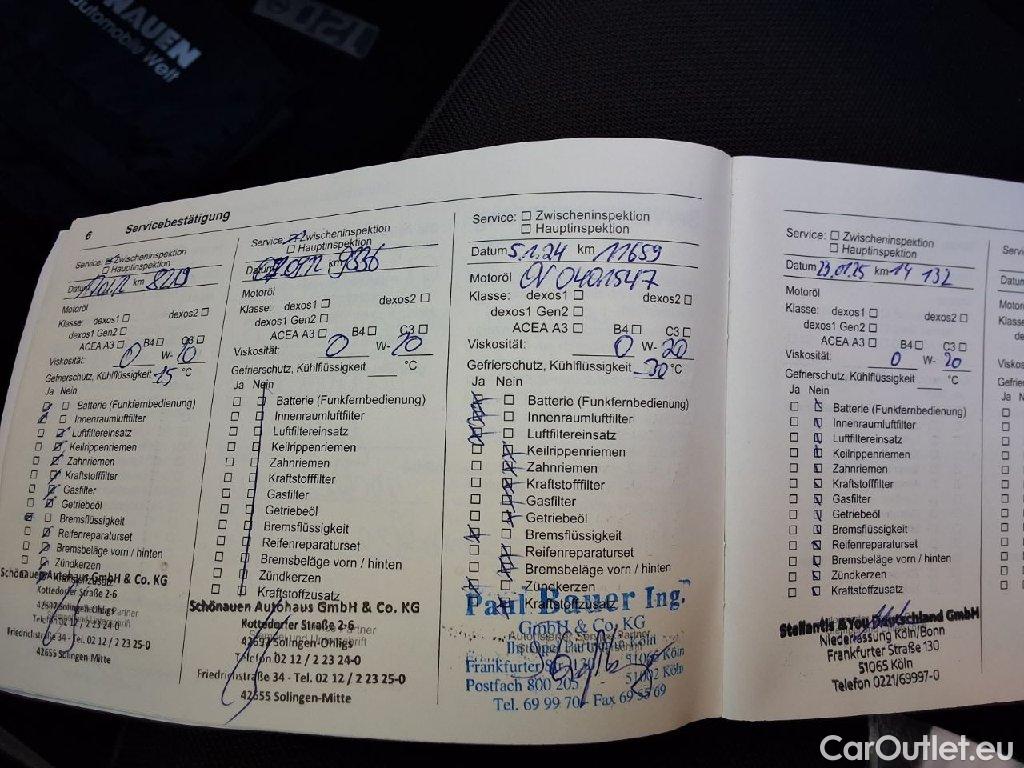 NAUEN
automobile Welt
6 Servicebestätigung
Service: Zwischeninspektion
Hauptinspektion
Datum km 8219
Motoröl
Klasse: dexos1 dexos2
dexos1 Gen2
ACEA A3 B4 C3
Viskosität: 0 W- 20
Gefrierschutz, Kühlflüssigkeit °C
Ja Nein
Batterie (Funkfernbedienung)
Innenraumluftfilter
Luftfiltereinsatz
Keilrippenriemen
Zahnriemen
Kraftstofffilter
Gasfilter
Getriebeöl
Bremsflüssigkeit
Reifenreparaturset
Bremsbeläge vorn / hinten
Zündkerzen
Schönauen Autohaus GmbH & Co. KG
Kottedorfer Straße 2-6
42697 Solingen-Ohligs
Telefon 02 12 / 2 23 24-0
Friedrichstraße 34 - Tel. 02 12 / 2 23 25-0
42655 Solingen-Mitte
Service: Zwischeninspektion
Hauptinspektion
Datum km 9836
Motoröl
Klasse: dexos1 dexos2
dexos1 Gen2
ACEA A3 B4 C3
Viskosität: 0 W- 20
Gefrierschutz, Kühlflüssigkeit °C
Ja Nein
Batterie (Funkfernbedienung)
Innenraumluftfilter
Luftfiltereinsatz
Keilrippenriemen
Zahnriemen
Kraftstofffilter
Gasfilter
Getriebeöl
Bremsflüssigkeit
Reifenreparaturset
Bremsbeläge vorn / hinten
Zündkerzen
Kraftstoffzusatz
Schönauen Autohaus GmbH & Co. KG
Kottedorfer Straße 2-6
Solingen-Ohligs
Telefon 02 12 / 2 23 24-0
Friedrichstraße 34 - Tel. 02 12 / 2 23 25-0
42655 Solingen-Mitte
Service: Zwischeninspektion
Hauptinspektion
Datum 5.1.24 km 11659
Motoröl OV0401547
Klasse: dexos1 dexos2
dexos1 Gen2
ACEA A3 B4 C3
Viskosität: 0 W- 20
Gefrierschutz, Kühlflüssigkeit -30 °C
Ja Nein
Batterie (Funkfernbedienung)
Innenraumluftfilter
Luftfiltereinsatz
Keilrippenriemen
Zahnriemen
Kraftstofffilter
Gasfilter
Getriebeöl
Bremsflüssigkeit
Reifenreparaturset
Bremsbeläge vorn / hinten
Zündkerzen
Kraftstoffzusatz
Paul Bauer Ing.
GmbH & Co. KG
Ihr Opel Partner in Köln
Frankfurter 51065 Köln
Postfach 800 205 51002 Köln
Tel. 69 99 70 - Fax 69 55 69
Service: Zwischeninspektion
Hauptinspektion
Datum 29.01.25 km 14 132
Motoröl
Klasse: dexos1 dexos2
dexos1 Gen2
ACEA A3 B4 C3
Viskosität: 0 W- 20
Gefrierschutz, Kühlflüssigkeit °C
Ja Nein
Batterie (Funkfernbedienung)
Innenraumluftfilter
Luftfiltereinsatz
Keilrippenriemen
Zahnriemen
Kraftstofffilter
Gasfilter
Getriebeöl
Bremsflüssigkeit
Reifenreparaturset
Bremsbeläge vorn / hinten
Zündkerzen
Kraftstoffzusatz
Stellantis &You Deutschland GmbH
Niederlassung Köln/Bonn
Frankfurter Straße 130
51065 Köln
Telefon 0221/69997-0
CarOutlet.eu